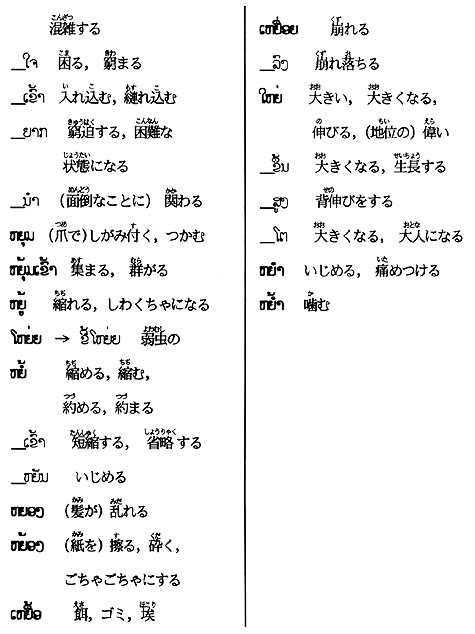 混雑する
__ໃຈ 困る, 窮まる
__ເຂົ້າ 入れ込む, 縺れ込む
__ຍາກ 窮迫する, 困難な
状態になる
__ນຳ (面倒なことに) 関わる
ຫຍຸມ (爪で)しがみ付く, つかむ
ຫຍຸ້ມເຂົ້າ 集まる, 群がる
ຫຍູ້ 縮れる, しわくちゃになる
ໂຫຍ່ຍ → ຂີ້ໂຫຍ່ຍ 弱虫の
ຫຍໍ້ 縮める, 縮む,
約める, 約まる
__ເຂົ້າ 短縮する, 省略する
__ຫຍັນ いじめる
ຫຍອງ (髪が) 乱れる
ຫຍ້ອງ (紙を) 擦る, 砕く,
ごちゃごちゃにする
ເຫຍື້ອ 餌, ゴミ, 埃
ເຫຍື່ອຍ 崩れる
__ລົງ 崩れ落ちる
ໃຫຍ່ 大きい, 大きくなる,
伸びる, (地位の) 偉い
__ຂຶ້ນ 大きくなる, 生長する
__ສູງ 背伸びをする
__ໂຕ 大きくなる, 大人になる
ຫຍຳ いじめる, 痛めつける
ຫຍ້ຳ 噛む